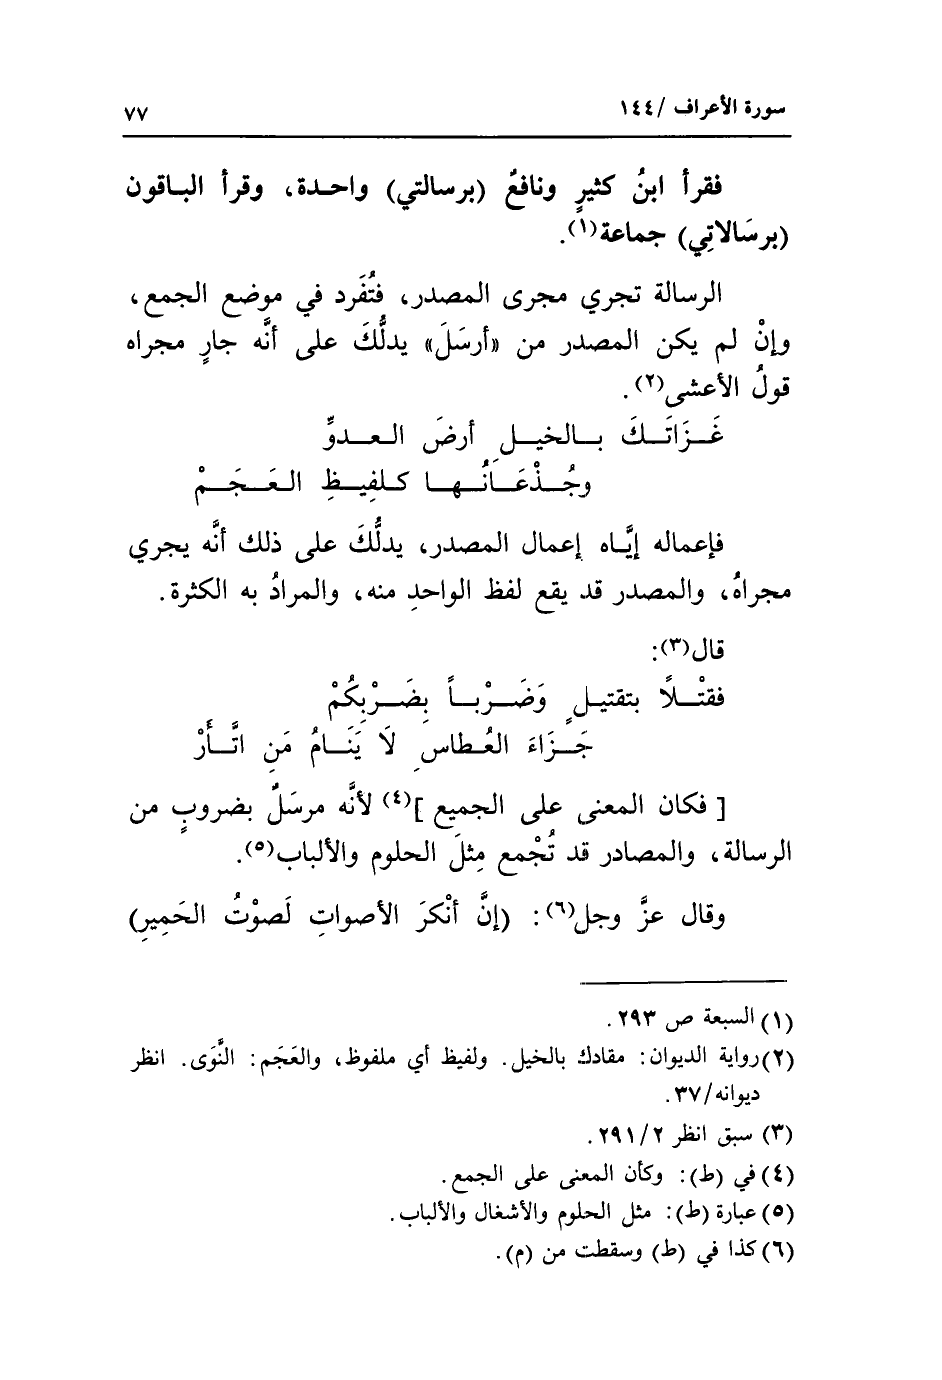 سورة الأعراف /١٤٤
٧٧
فقرأ ابنُ كثيرٍ ونافعٌ (برسالتي) واحدة، وقرأ الباقون
(برسَالاتِي) جماعة(١).
الرسالة تجري مجرى المصدر، فتُفَرد في موضع الجمع،
وإنْ لم يكن المصدر من «أرسَلَ» يدلُّكَ على أنَّه جارٍ مجراه
قولُ الأعشى(٢).
غَـزَاتَـكَ بـالخيـلِ أرضَ العـدوِّ
وجُـذْعَـانُـهـا كـلفِيـظِ العَـجَـمْ
فإعماله إيَّاه إعمال المصدر، يدلُّكَ على ذلك أنَّه يجري
مجراهُ، والمصدر قد يقع لفظ الواحدِ منه، والمرادُ به الكثرة.
قال(٣):
فقتْـلًا بتقتيـلٍ وَضَـرْبـاً بِضَـرْبِكُمْ
جَـزَاءَ العُـطاسِ لَا يَنَـامُ مَنِ اتَّـأَرْ
[ فكان المعنى على الجميع ](٤) لأنَّه مرسَلٌ بضروبٍ من
الرسالة، والمصادر قد تُجْمع مِثلَ الحلوم والألباب(٥).
وقال عزَّ وجل(٦): (إنَّ أنْكرَ الأصواتِ لَصوْتُ الحَمِيرِ)
(١) السبعة ص ٢٩٣.
(٢) رواية الديوان: مقادك بالخيل. ولفيظ أي ملفوظ، والعَجَم: النَّوَى. انظر
ديوانه/٣٧.
(٣) سبق انظر ٢٩١/٢.
(٤) في (ط): وكأن المعنى على الجمع.
(٥) عبارة (ط): مثل الحلوم والأشغال والألباب.
(٦) كذا في (ط) وسقطت من (م).